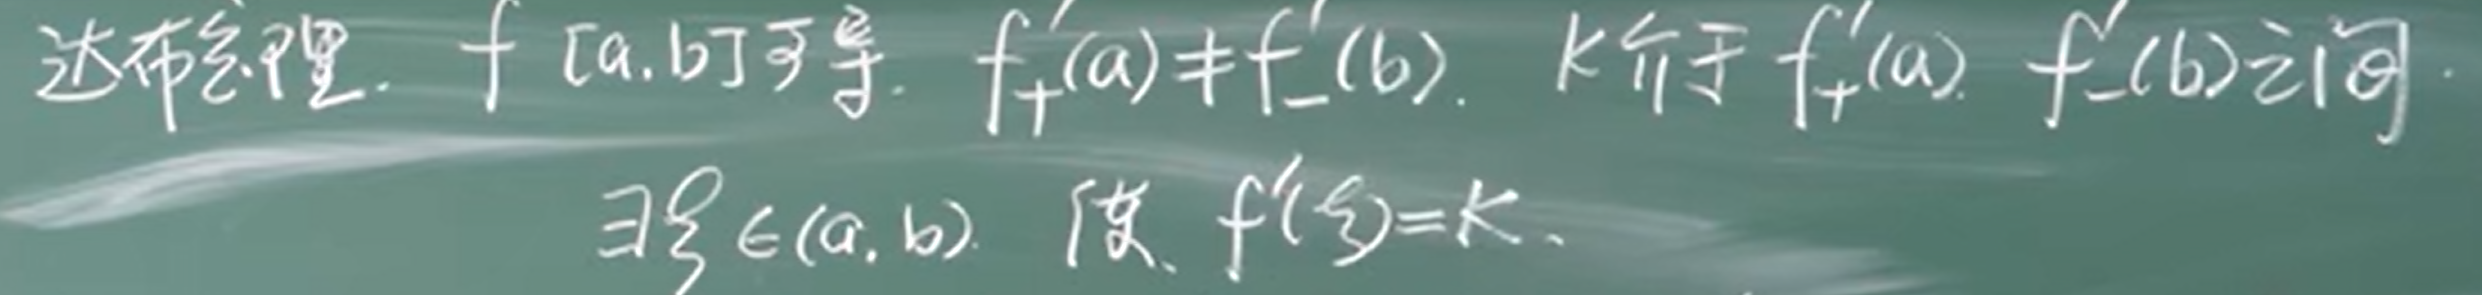 达布定理. f [a.b]可导. f₊′(a)≠f₋′(b). K介于 f₊′(a). f₋′(b)之间.
∃ξ∈(a.b). 使、f′(ξ)=K、